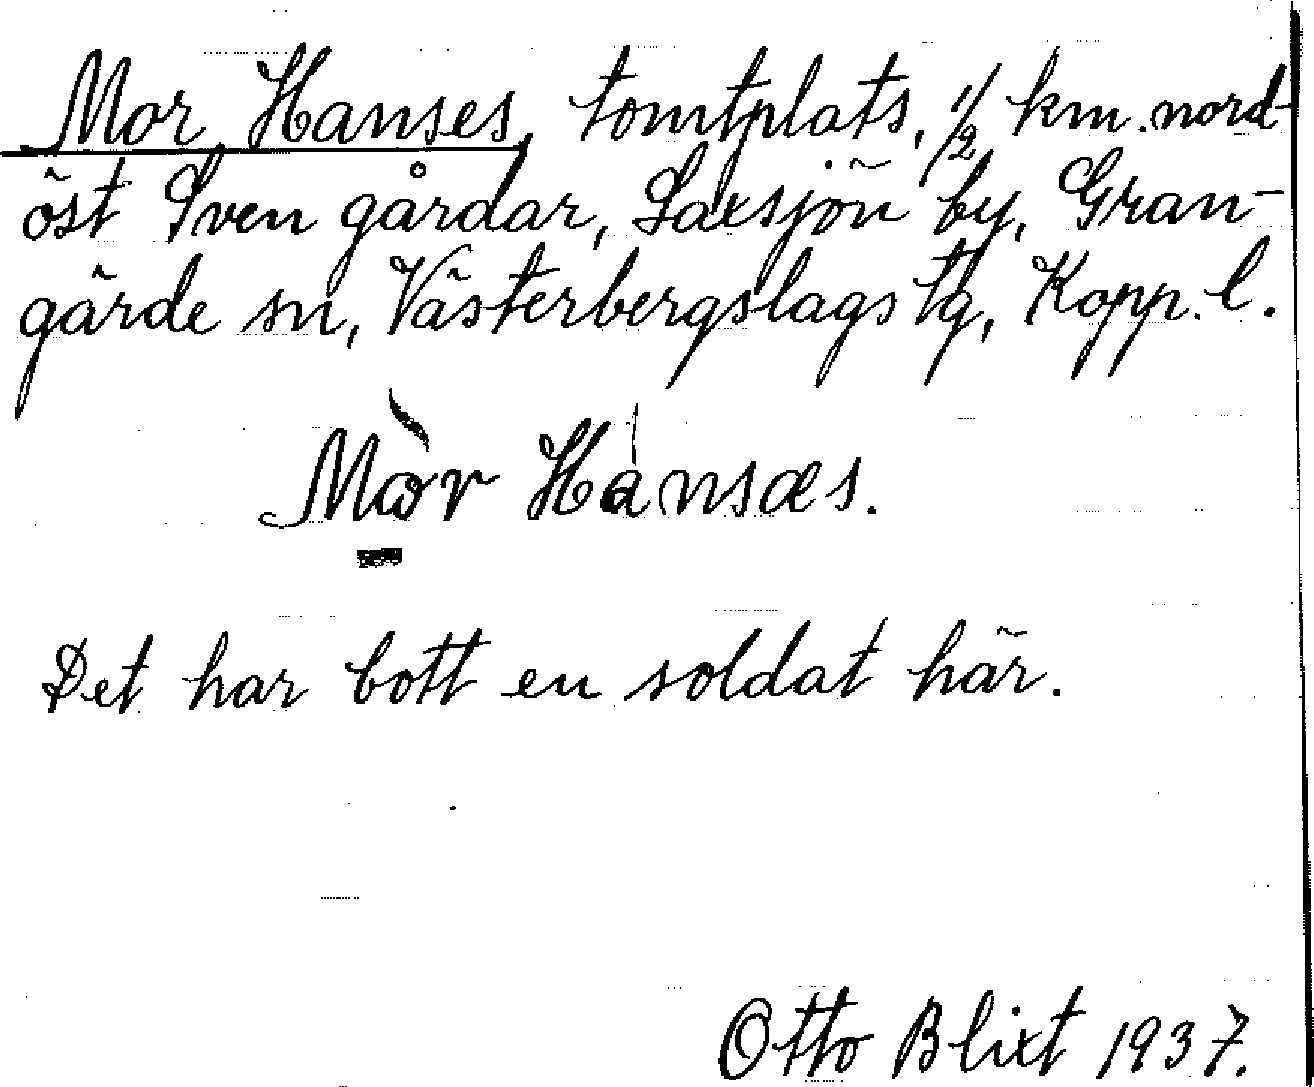 Mor Hanses, tomtplats, 1/2 km. nord-
öst Sven gårdar, Saxsjön by, Gran-
gärde sn, Västerbergslags tg, Kopp. l.
Mòr Hánsæs.
Det har bott en soldat här.
Otto Blixt 1937.